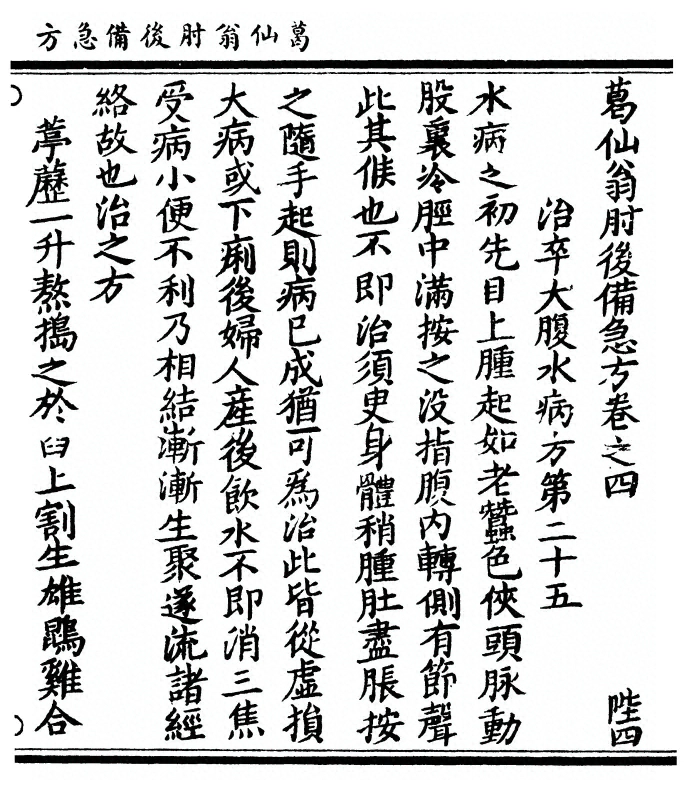 葛仙翁肘後備急方
葛仙翁肘後備急方卷之四 陛四
治卒大腹水病方第二十五
水病之初先目上腫起如老蠶色俠頭脉動
股裏冷脛中滿按之没指腹内轉側有節聲
此其候也不即治須史身體稍腫肚盡脹按
之隨手起則病已成猶可爲治此皆從虛損
大病或下痢後婦人産後飲水不即消三焦
受病小便不利乃相結漸漸生聚遂流諸經
絡故也治之方
葶藶一升熬搗之於臼上割生雄鵾雞合